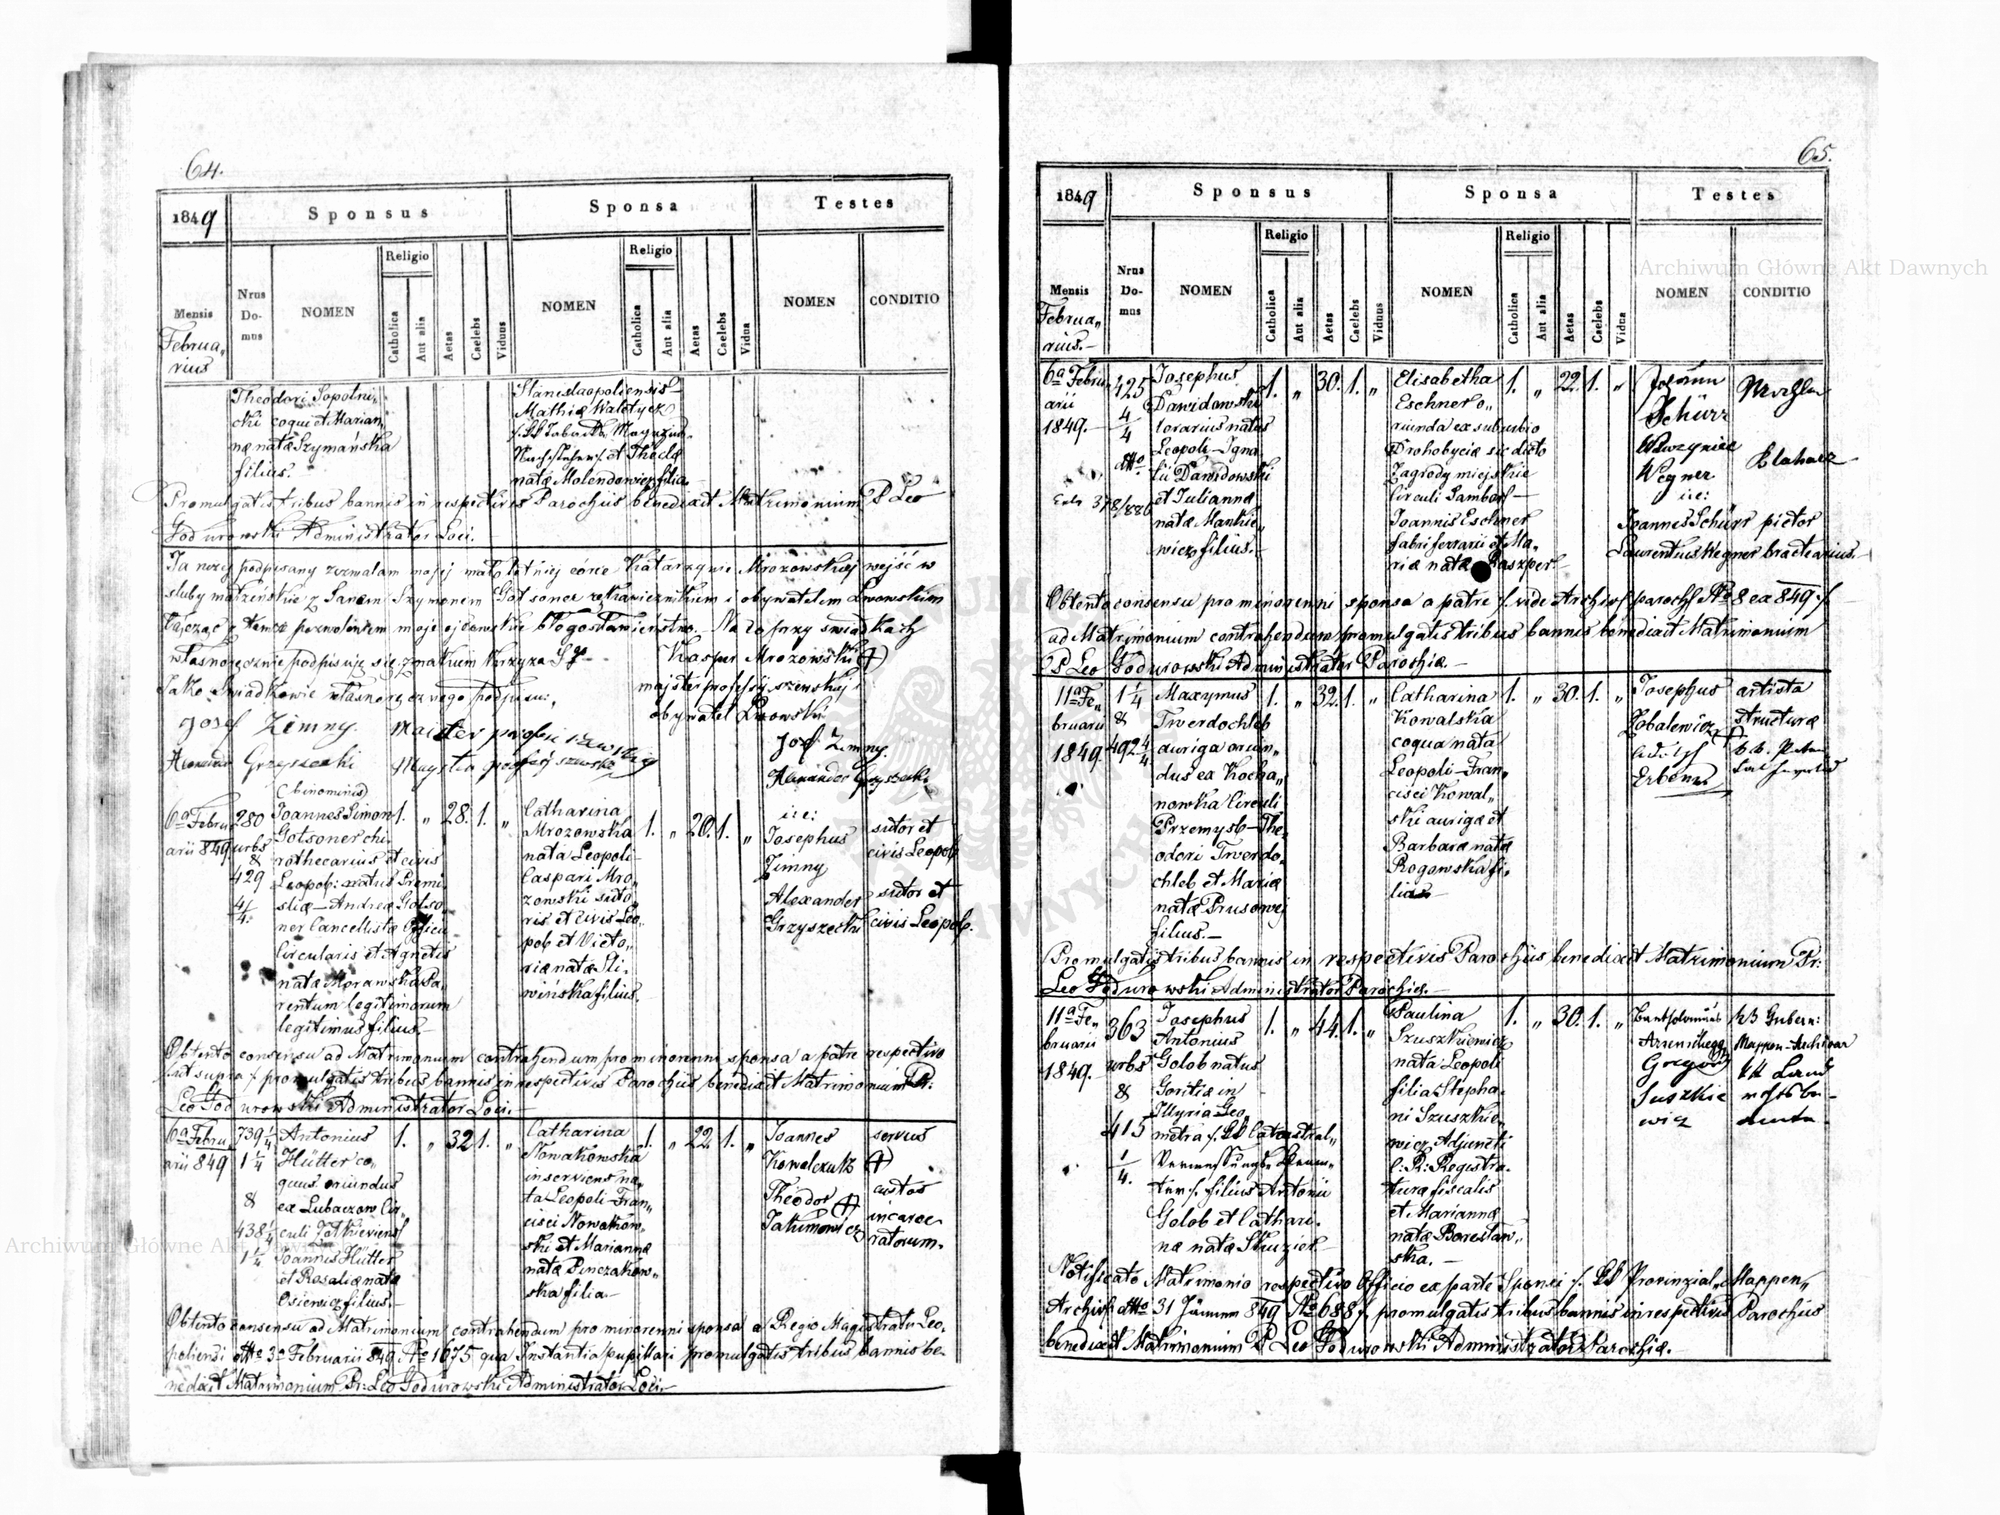 64.
1849
Sponsus
Sponsa
Testes
Mensis
Februa„
rius
Nrus
Do-
mus
NOMEN
Religio
Catholica
Aut alia
Aetas
Caelebs
Viduus
NOMEN
Religio
Catholica
Aut alia
Aetas
Caelebs
Vidua
NOMEN
CONDITIO
Theodori Sopolni„
cki coqui et Marian„
næ natæ Szymańska
filius.
Stanislaopoliensis
Mathiæ
et Theclæ
natæ Molendowicz filia.
Promulgatis tribus bannis in respectivis Parochiis benedixit Matrimonium P Leo
Godurowski Administrator Loci.
Ja niżej podpisany zezwalam mojej małoletniej córce Katarzynie Mrozowskiej wejść w
śluby małżeńskie z Panem Szymonem Gotsoner rękawicznikiem i obywatelem Lwowskim
łącząc z tamże pozwoleniem moje ojcowskie błogosławieństwo. Na to przy świadkach
własnoręcznie podpisuję się znakiem krzyża S.
Kasper Mrozowski
Jako Świadkowie własnoręcznego podpisu:
majster profesyi szewskiej i
obywatel Lwowski
Josef Zimny. Majster
Józef Zimny.
Alexander Grzyszecki
Alexander Grzyszecki
(binominis)
6ª Febru
arii 849
280
urbs
&
429
4/4.
Joannes Simon
Gotsoner chi„
rothecarius et civis
Leopol: natus Premi„
sliæ – Andreæ Gotso„
ner Cancellistæ Officii
Circularis et Agnetis
natæ Morawska Pa„
rentum legitimorum
legitimus filius.
1. „ 28. 1. „
Catharina
Mrozowska
nata Leopoli
Caspari Mro„
zowski suto„
ris et civis Leo„
pol: et Victo„
riæ natæ Sli„
wińska filius.
1. „ 20. 1. „
ice:
Josephus
Zimny
Alexander
Grzyszecki
sutor et
civis Leopol:
sutor et
civis Leopol.
Obtento consensu ad Matrimonium contrahendum pro minorenni sponsa a patre respectivo
/ut supra/ promulgatis tribus bannis in respectivis Parochiis benedixit Matrimonium Pr:
Leo Godurowski Administrator Loci.
6ª Febru
arii 849
739 1/4
1 1/4
&
438 1/4
1 1/4
Antonius
Hütter co„
quus oriundus
ex Lubaczow Cir„
culi Zołkieviens
Joannis Hütter
et Rosaliæ natæ
Osiewicz filius.
1. „ 32 1. „
Catharina
Nowakowska
inserviens na„
ta Leopoli Fran„
cisci Nowakow„
ski et Mariannæ
natæ Pinczakow„
ska filia.
1. „ 22. 1. „
Joannes
Kowalczuk
Theodor
Jakimowicz
servus
custos
incarce
ratorum.
Obtento consensu ad Matrimonium contrahendum pro minorenni sponsa a Regio Magistratu Leo„
poliensi dtto 3ª Februarii 849 No 1075 qua Instantia pupillari promulgatis tribus bannis be„
nedixit Matrimonium Pr: Leo Godurowski Administrator Loci.
65.
1849
Sponsus
Sponsa
Testes
Mensis
Februa„
rius.
Nrus
Do-
mus
NOMEN
Religio
Catholica
Aut alia
Aetas
Caelebs
Viduus
NOMEN
Religio
Catholica
Aut alia
Aetas
Caelebs
Vidua
NOMEN
CONDITIO
6ª Febru
arii
1849.
425
4/4
dtto
Josephus
Dawidowski
natus
Leopoli Igna„
tii Dawidowski
et Juliannæ
natæ Mankie„
wicz filius.
1. „ 30. 1. „
Elisabetha
Eschner o„
riunda ex suburbio
Drohobyciæ sic dicto
Zagrody miejskie
Circuli Sambor
Joannis Eschner
fabri ferrarii et Ma„
riæ natæ Kaszper
1. „ 22. 1. „
Johann
Schürr
Wawrzyniec
Wegner
ice:
Joannes Schürr pictor
Laurentius Wegner bractearius.
Obtento consensu pro minorenni sponsa a patre /. vide Archiv parochl No 8 ex 849 /.
ad Matrimonium contrahendum promulgatis tribus bannis benedixit Matrimonium
P Leo Godurowski Administrator Parochiæ.
11ª Fe„
bruarii
1849.
1 1/4
&
492 4/4
Maxymus
Twerdochleb
auriga oriun„
dus ex Kocha„
nowka Circuli
Przemysl – The„
odori Twerdo„
chleb et Mariæ
natæ Prusowej
filius.
1. „ 32. 1. „
Catharina
Kowalska
coqua nata
Leopoli Fran„
cisci Kowal„
ski aurigæ et
Barbaræ natæ
Rogowska fi„
lia
1. „ 30. 1. „
Josephus
Zobalewicz
artista
structuræ
Promulgatis tribus bannis in respectivis Parochiis benedixit Matrimonium Pr:
Leo Godurowski Administrator Parochiæ.
11ª Fe„
bruarii
1849.
363
urbs
&
415
1/4.
Josephus
Antonius
Golob natus
Goritia in
Illyria Geo„
metra /. KK Catastral„
Vermessungs
/. filius Antonii
Golob et Cathari„
næ natæ Skuziek
1. „ 44. 1. „
Paulina
Szuszkiewicz
nata Leopoli
filia Stepha„
ni Szuszkie„
wicz Adjuncti
C: R: Registra„
turæ fiscalis
et Mariannæ
natæ Boresław„
ska.
1. „ 30. 1. „
Gregor
Suszkie
wicz
Gubern:
Mappen-Archivar
kk Land
Notificato Matrimonio respectivo Officio ex parte Sponsi /. KK Provinzial Mappen„
Archiv dtto 31 Jänner 849 No 688 /. promulgatis tribus bannis in respectivis Parochiis
benedixit Matrimonium P Leo Godurowski Administrator Parochiæ.
Archiwum Główne Akt Dawnych
Archiwum Główne Akt Dawnych